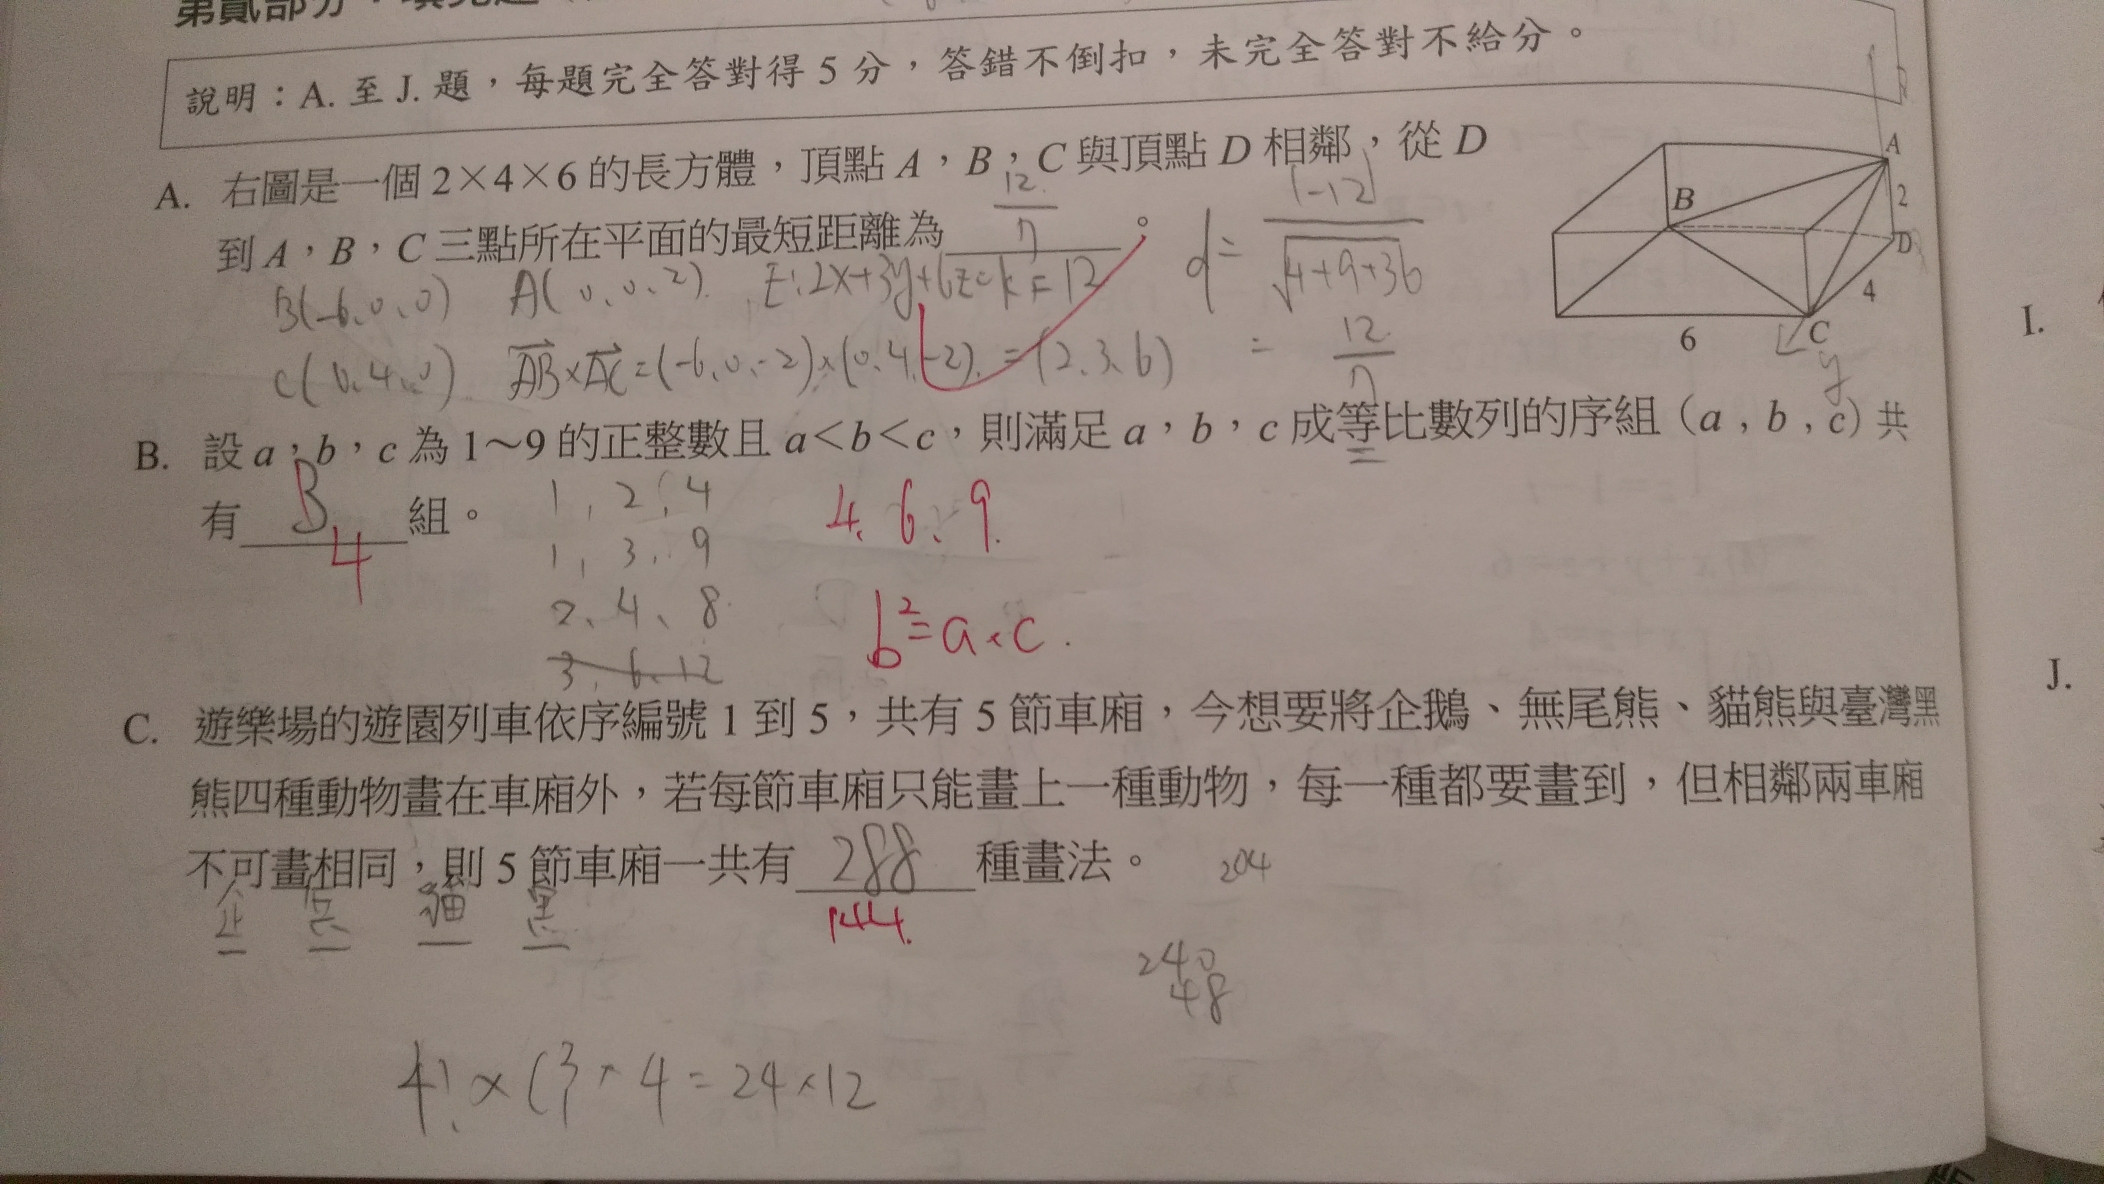 說明：A. 至 J. 題，每題完全答對得 5 分，答錯不倒扣，未完全答對不給分。
A. 右圖是一個 2×4×6 的長方體，頂點 A，B，C 與頂點 D 相鄰，從 D
到 A，B，C 三點所在平面的最短距離為 12/7 。
d = |-12| / √4+9+36
= 12/7
B(-6、0、0) A(0、0、2) E:2x+3y+6z=k=12
C(0、4、0) AB×AC=(-6、0、-2)×(0、4、-2)=(2、3、6)
A
B
2
D
4
6
C
y
B. 設 a，b，c 為 1～9 的正整數且 a<b<c，則滿足 a，b，c 成等比數列的序組（a , b , c）共
有 3 組。
4
1, 2, 4
1, 3, 9
2、4、8
3、6、12
4、6、9
b²=a×c.
C. 遊樂場的遊園列車依序編號 1 到 5，共有 5 節車廂，今想要將企鵝、無尾熊、貓熊與臺灣黑
熊四種動物畫在車廂外，若每節車廂只能畫上一種動物，每一種都要畫到，但相鄰兩車廂
不可畫相同，則 5 節車廂一共有 288 種畫法。
204
144.
企 無 貓 黑
240
48
4! × C³ × 4 = 24×12
I.
J.